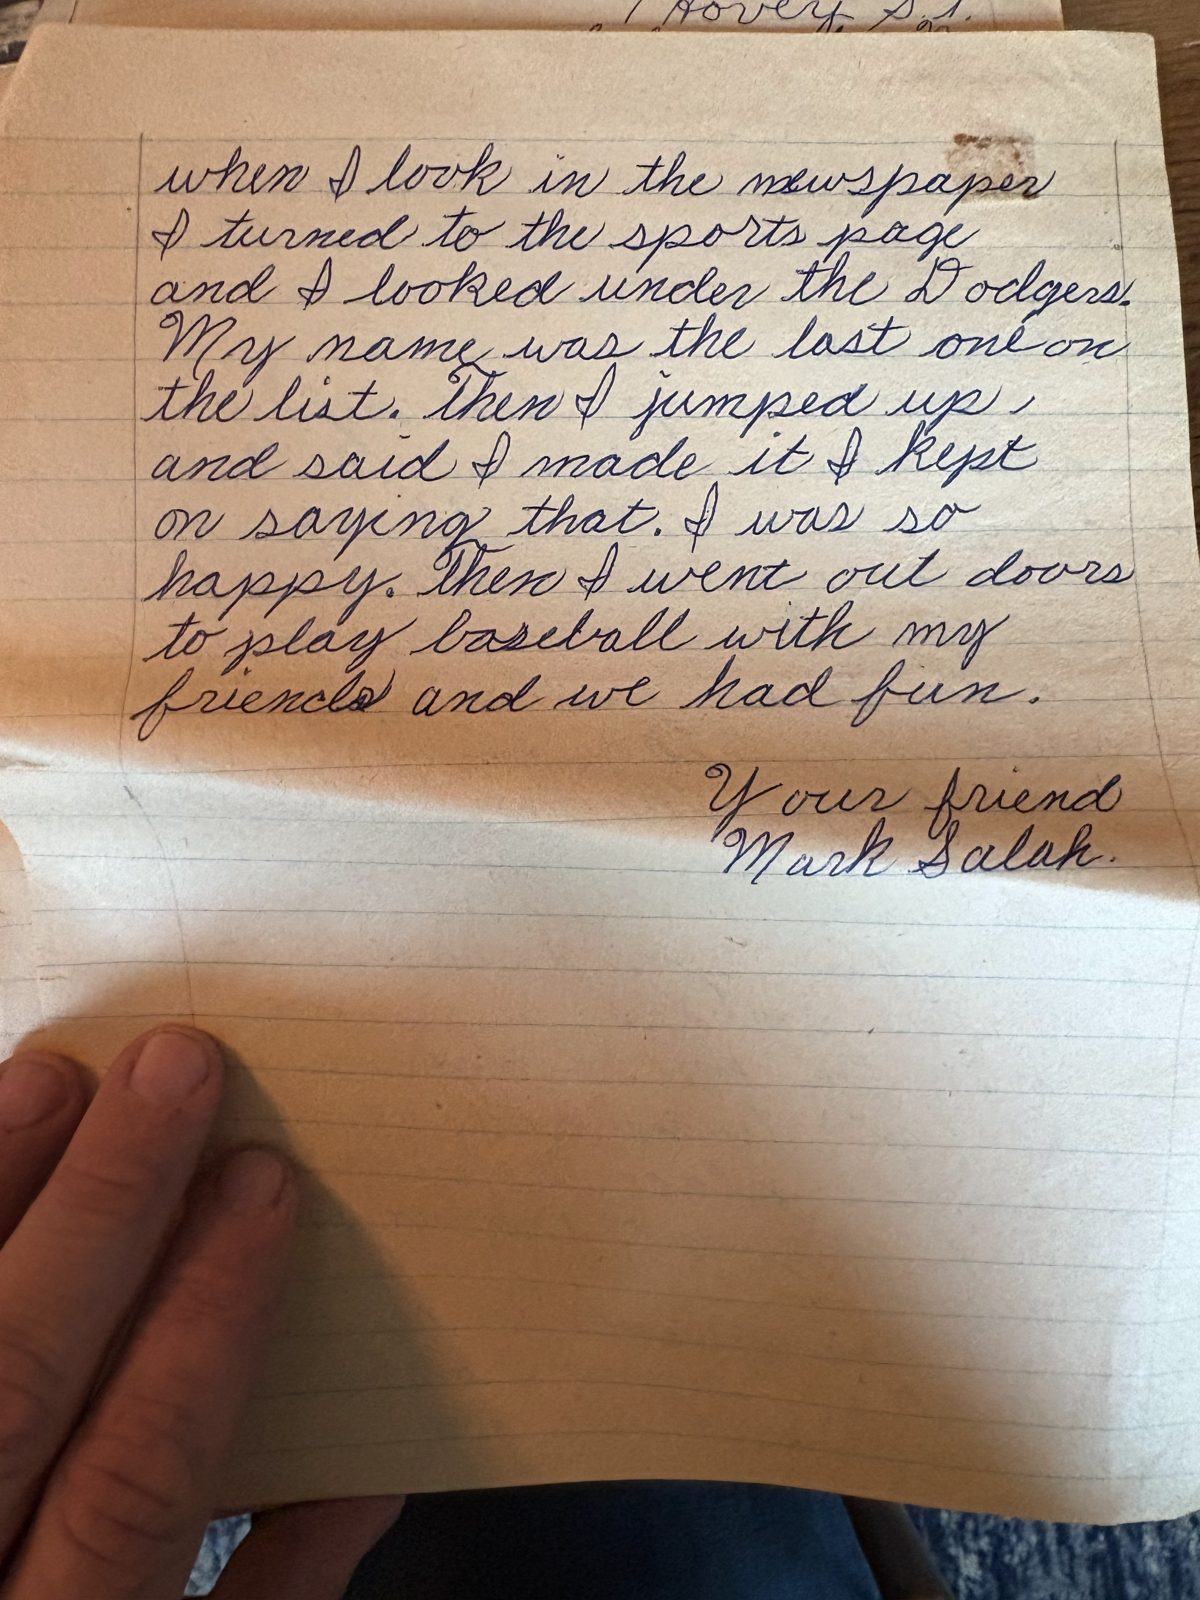 Hovey St.
when I look in the newspaper
I turned to the sports page
and I looked under the Dodgers.
My name was the last one on
the list. Then I jumped up,
and said I made it I kept
on saying that. I was so
happy. Then I went out doors
to play baseball with my
friends and we had fun.
Your friend
Mark Salah.